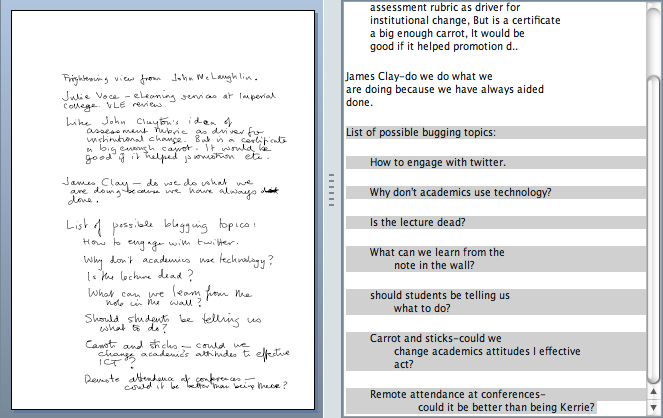 Frightening view from John McLaughlin.
Julie Voce - eLearning services at Imperial
college VLE review.
Like John Clayton's idea of
assessment rubric as driver for
institutional change. But is a certificate
a big enough carrot. It would be
good if it helped promotion etc.
James Clay - do we do what we
are doing because we have always
done.
List of possible blogging topics:
How to engage with twitter.
Why don't academics use technology?
Is the lecture dead?
What can we learn from the
hole in the wall?
Should students be telling us
what to do?
Carrots and sticks - could we
change academics attitudes to effective
ICT?
Remote attendance at conferences -
could it be better than being there?
assessment rubric as driver for
institutional change, But is a certificate
a big enough carrot, It would be
good if it helped promotion d..
James Clay-do we do what we
are doing because we have always aided
done.
List of possible bugging topics:
How to engage with twitter.
Why don't academics use technology?
Is the lecture dead?
What can we learn from the
note in the wall?
should students be telling us
what to do?
Carrot and sticks-could we
change academics attitudes I effective
act?
Remote attendance at conferences-
could it be better than being Kerrie?